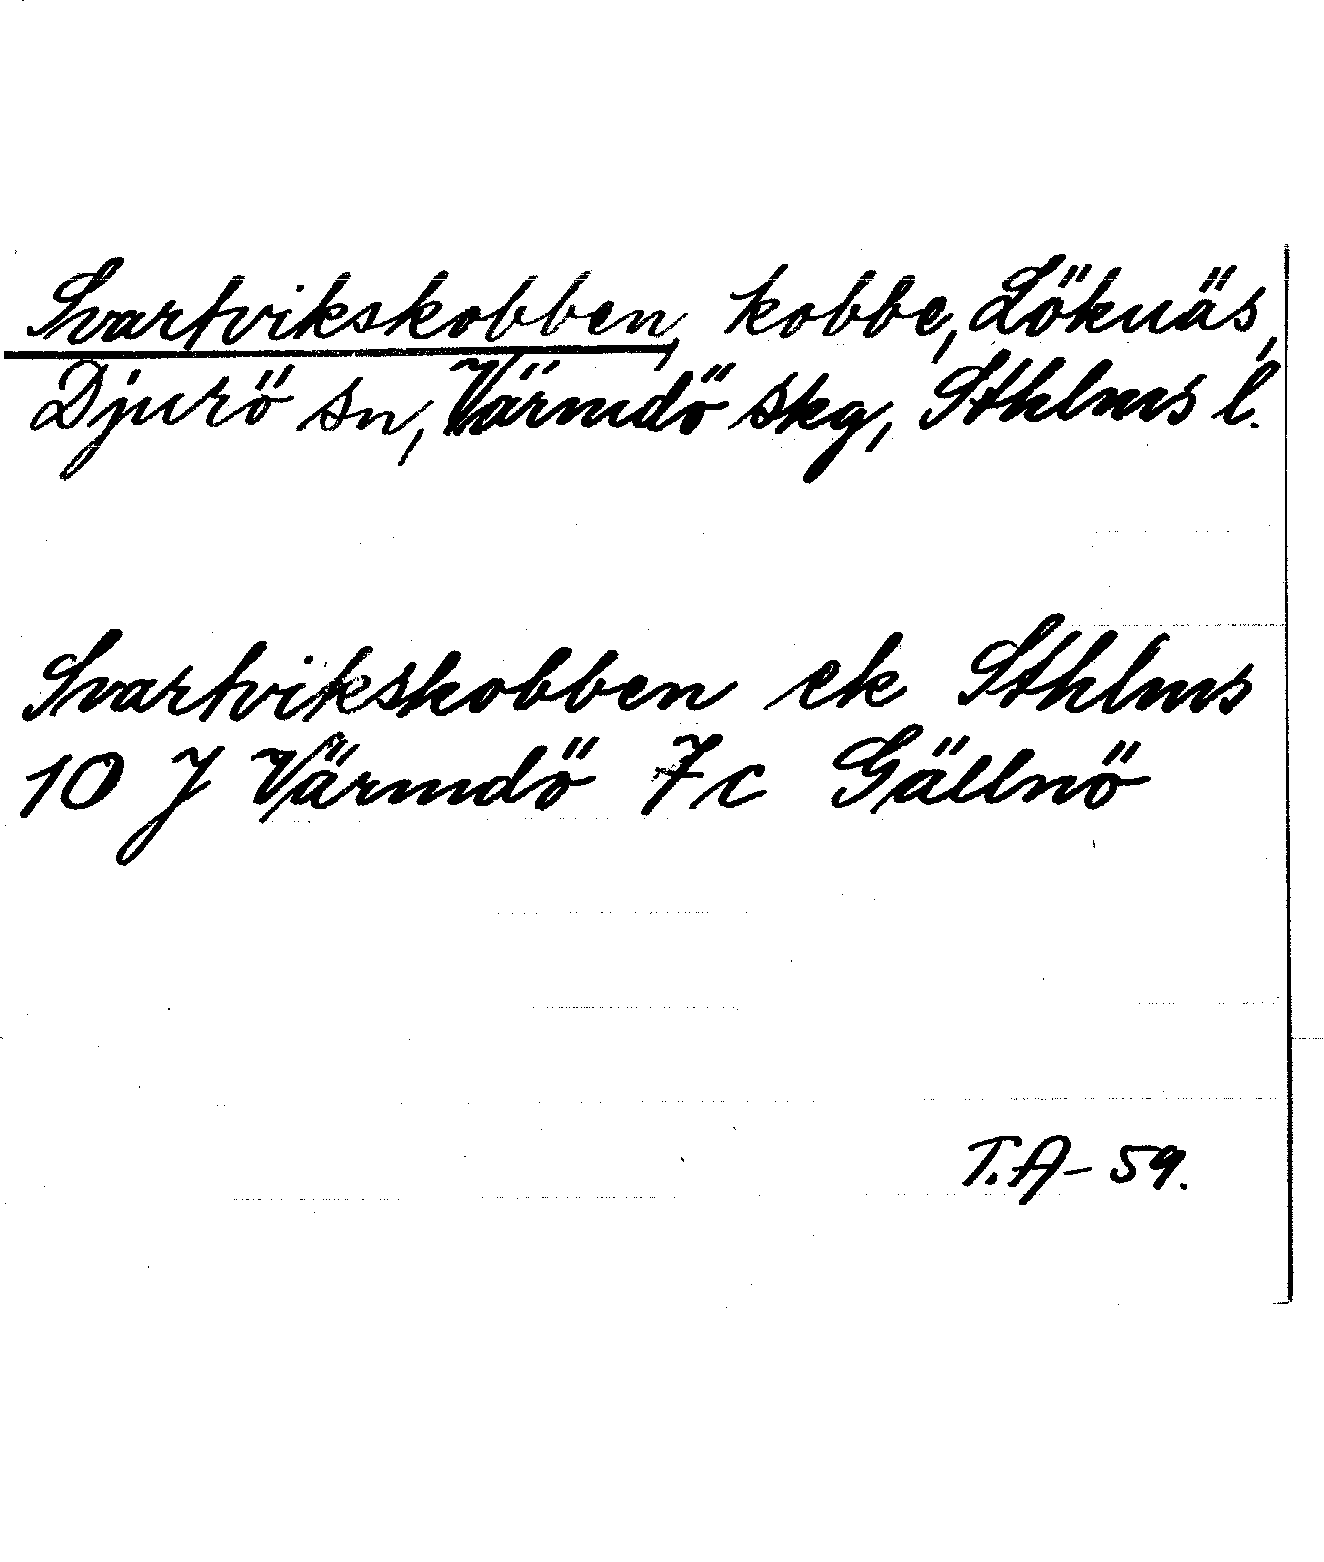 Svartvikskobben, kobbe, Löknäs,
Djurö sn, Värmdö skg, Sthlms l.
Svartvikskobben ek Sthlms
10 J Värmdö 7c Gällnö
T.A-59.